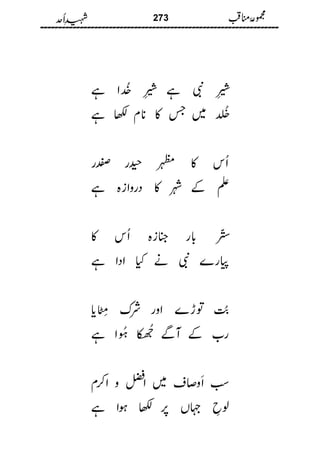 مجموعۂ مناقب 273 شہیدِ اُحد
شیرِ نبی ہے شیرِ خُدا ہے
خُلد میں جس کا نام لکھا ہے
اُس کا مظہر حیدر صفدر
علم کے شہر کا دروازہ ہے
ستّر بار جنازہ اُس کا
پیارے نبی نے ایک ادا ہے
بُت توڑے اور شرک مِٹایا
رب کے آگے جُھکا ہُوا ہے
سب اَوصاف میں افضل و اکرم
لوحِ جہاں پر لکھا ہوا ہے